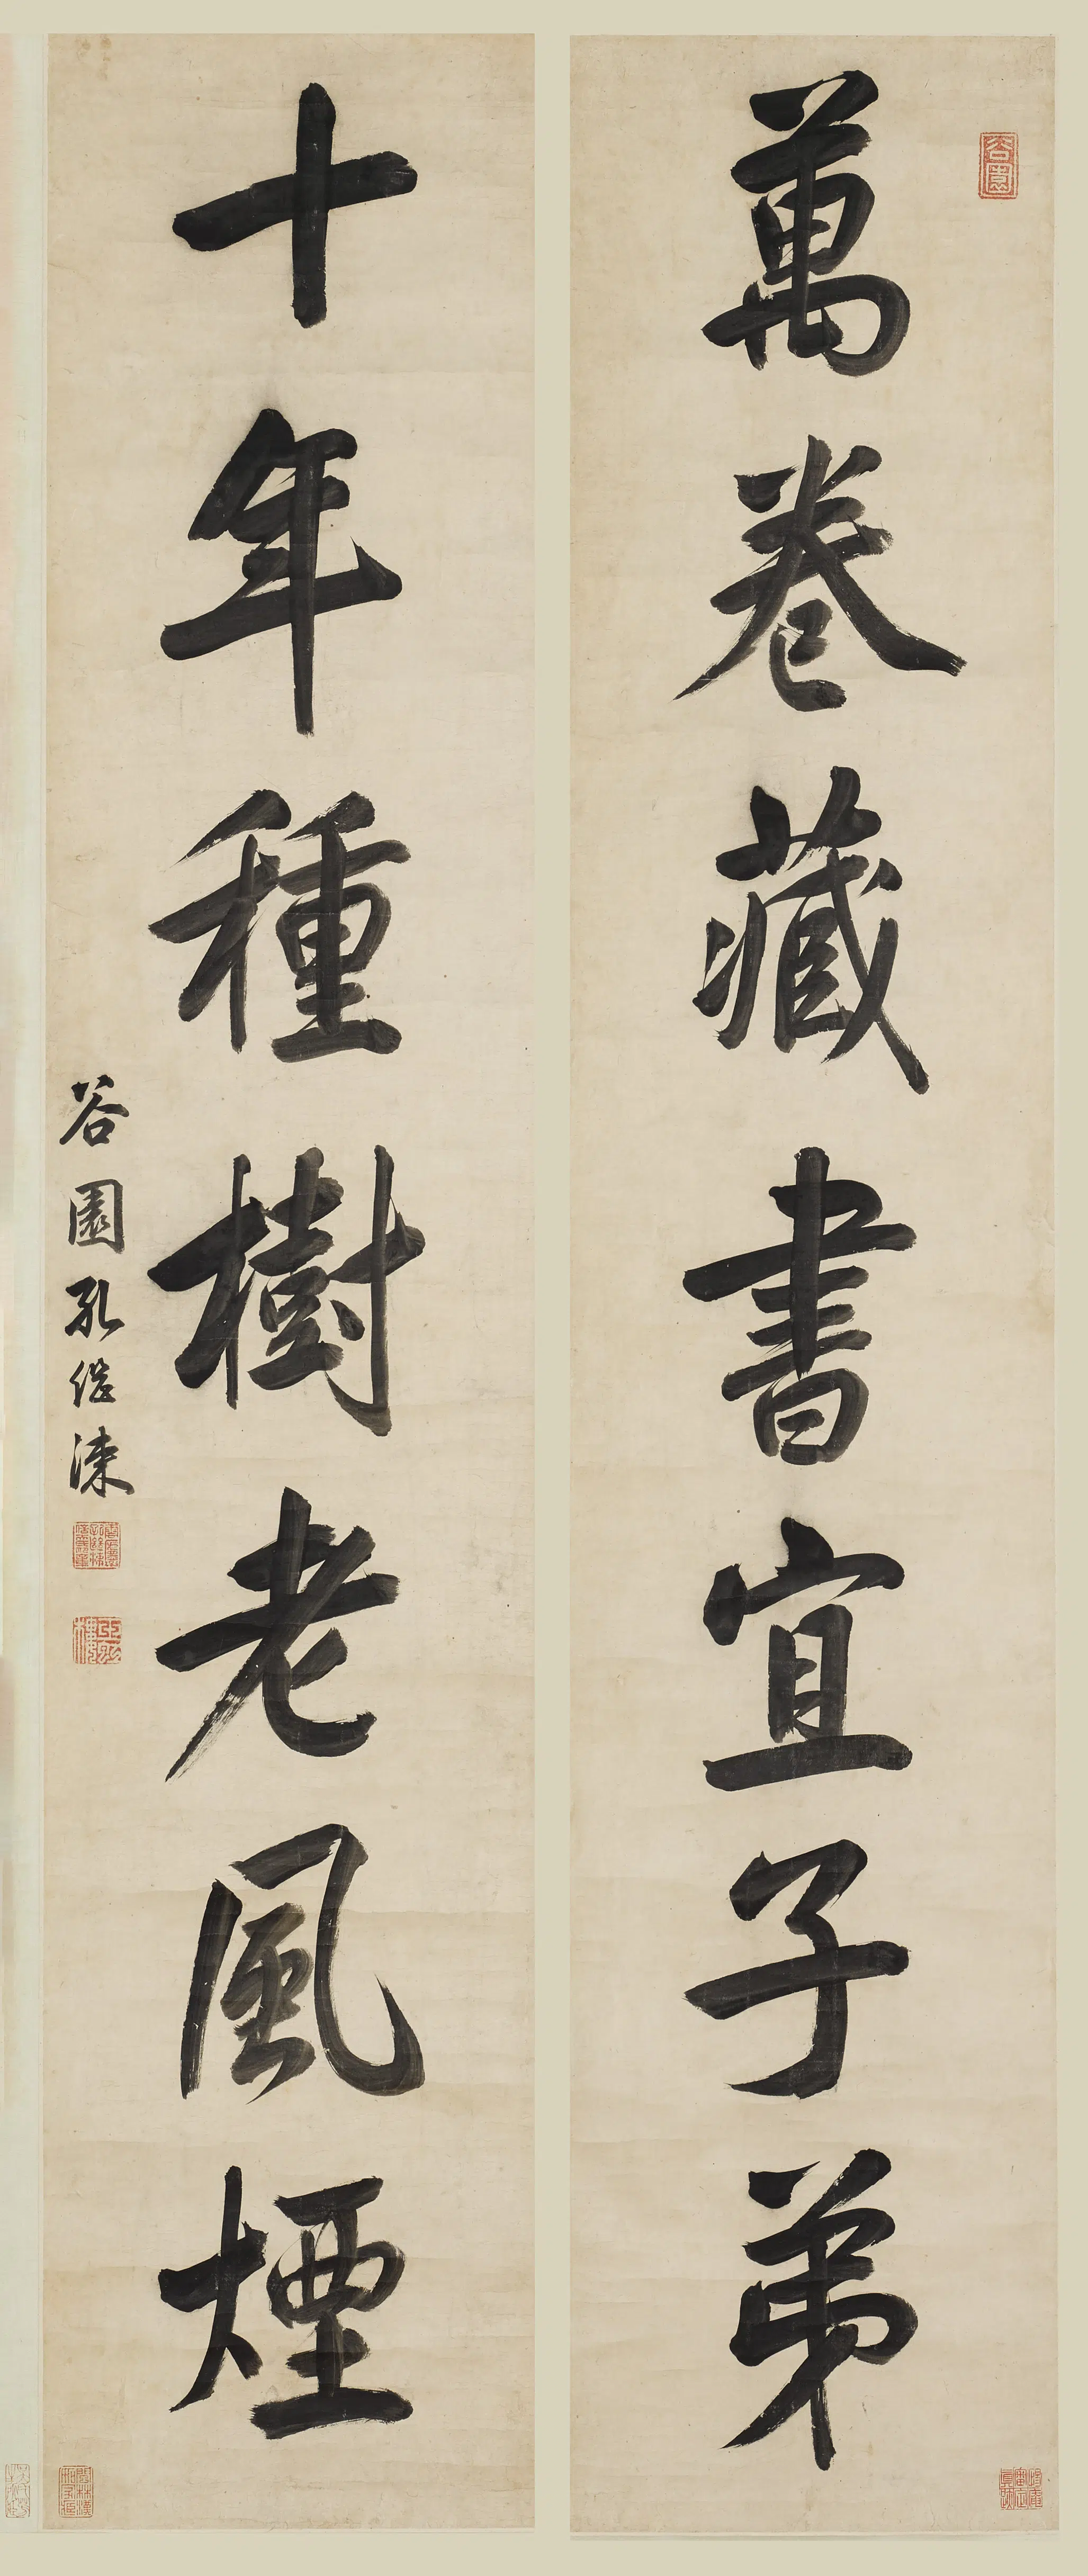 萬卷藏書宜子弟
十年種樹老風煙
谷園孔继涑
谷園